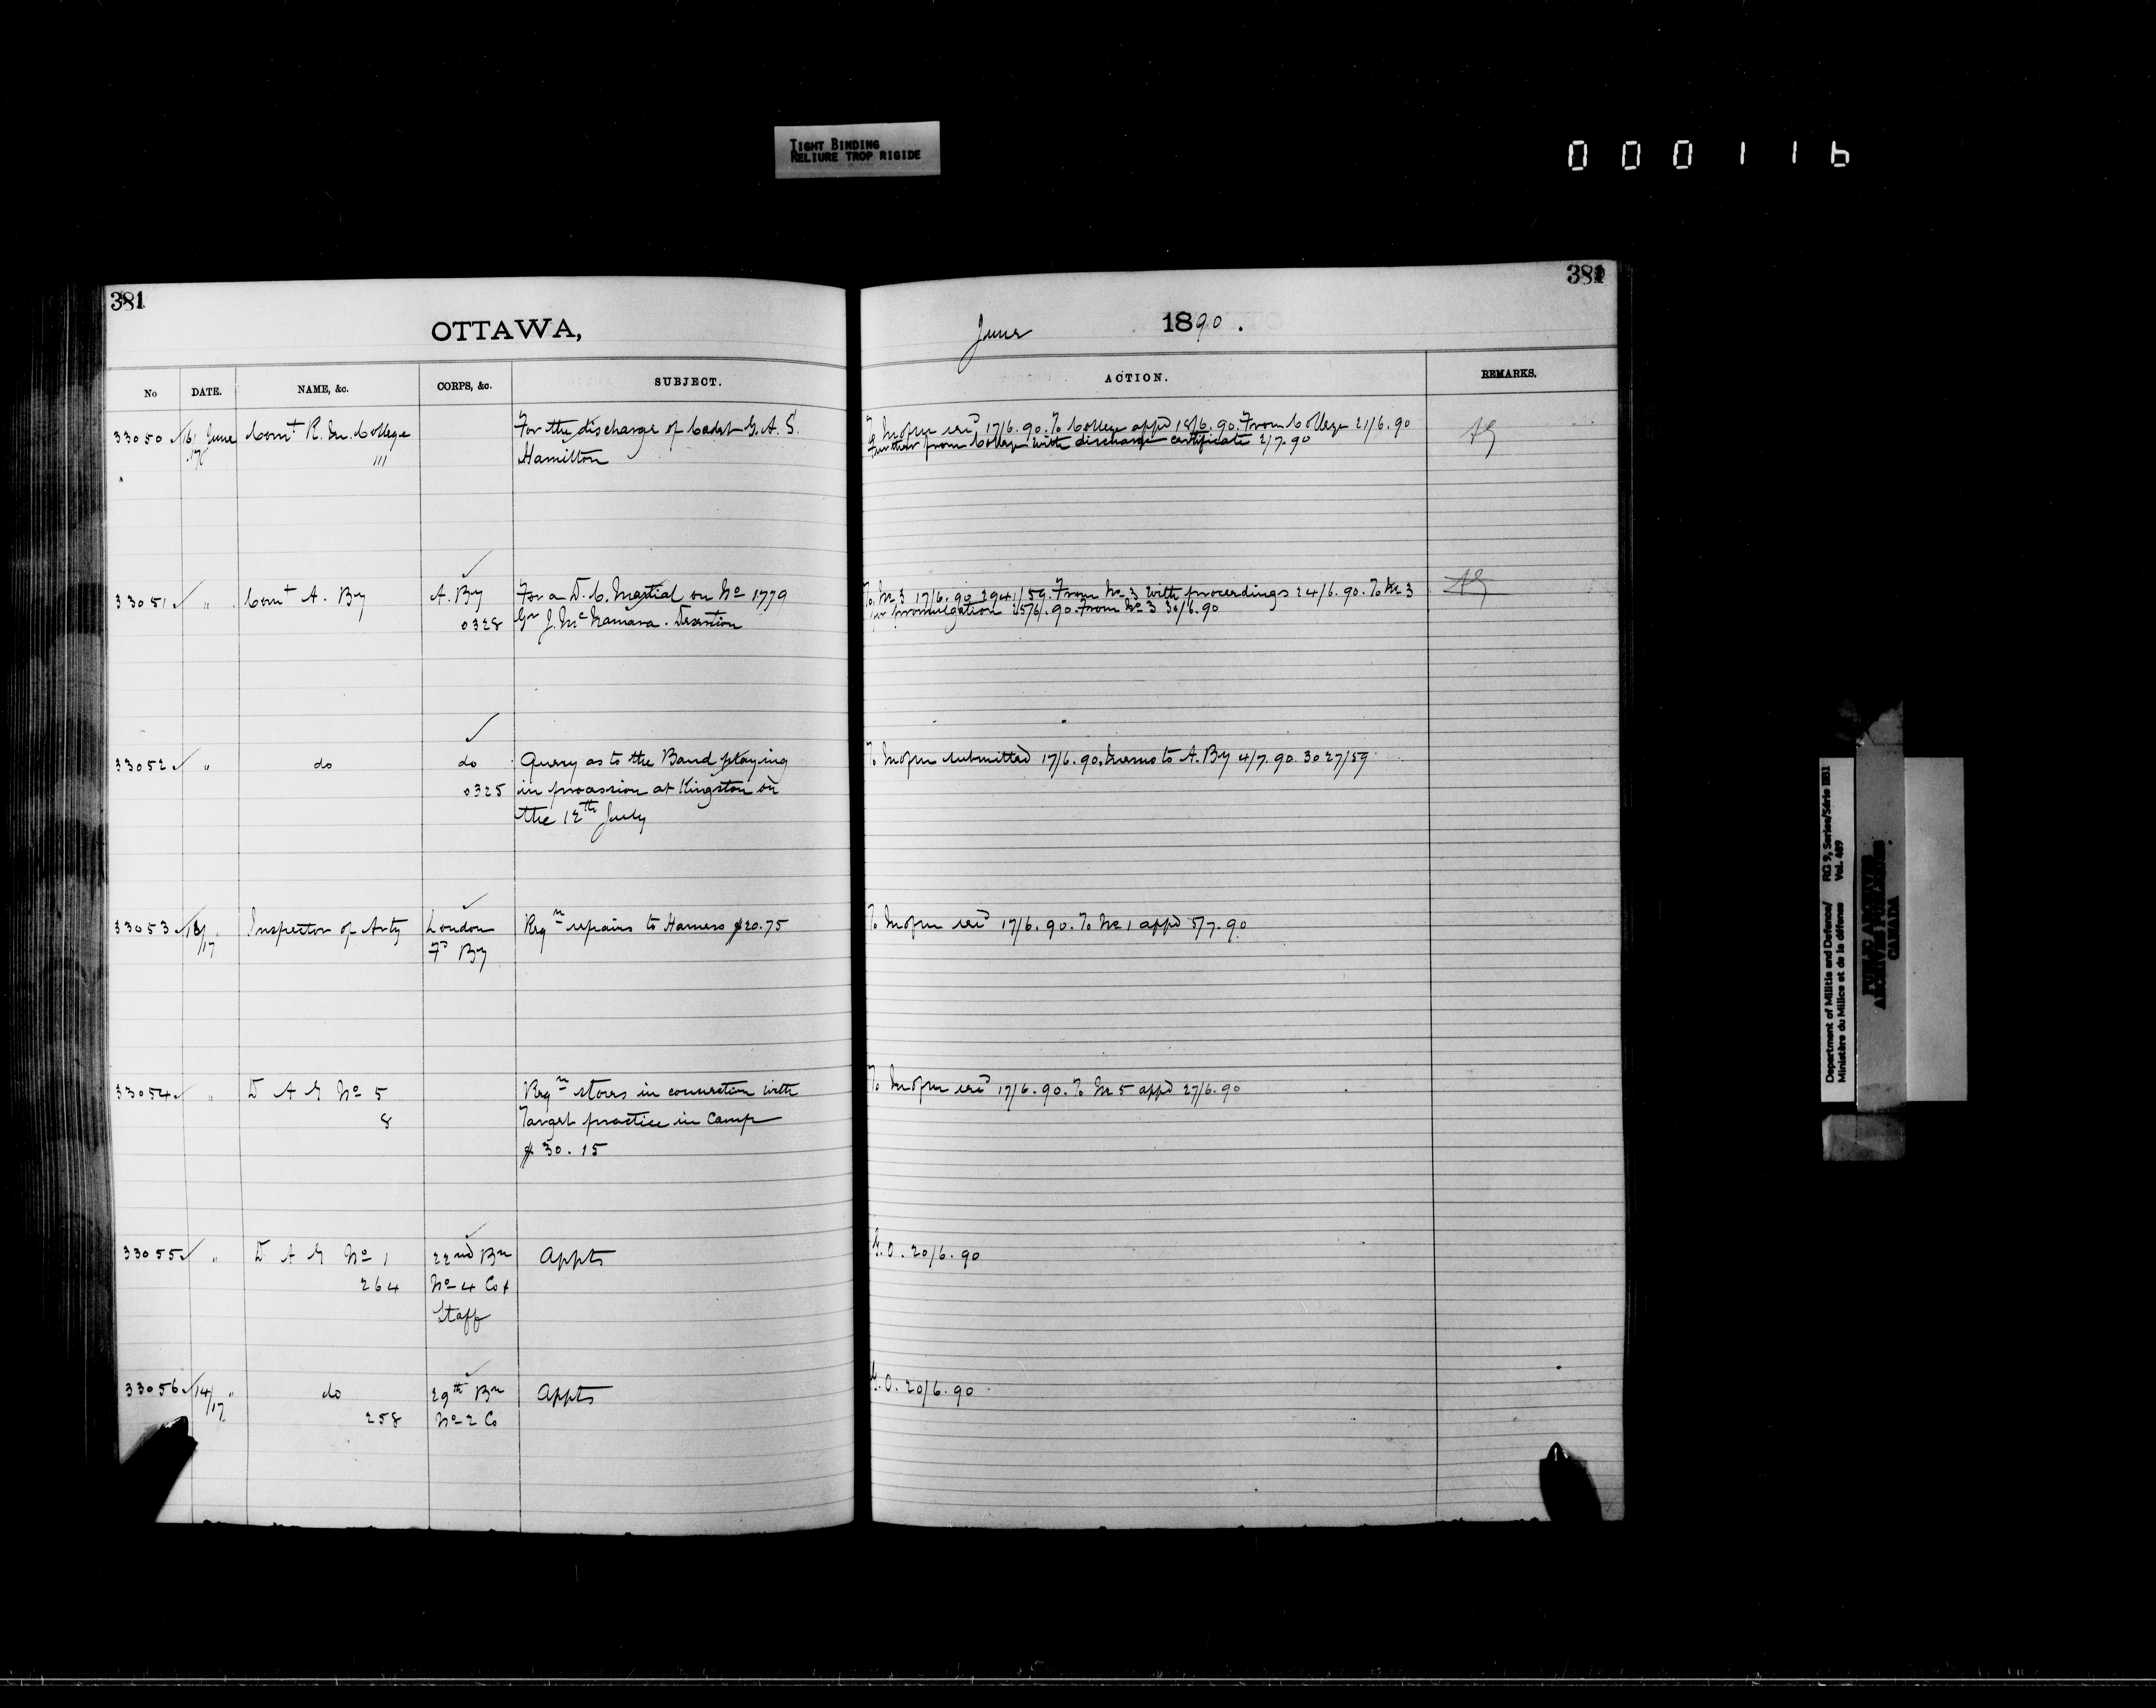 TIGHT BINDING
RELIURE TROP RIGIDE
000116
381
OTTAWA,
No DATE. NAME, &c. CORPS, &c. SUBJECT.
33050 16/17 June Comt R. M. College For the discharge of Cadet G. A. S.
111 Hamilton
33051 " Comt A. By A. By For a D. C. Martial on No 1779
0328 Gr J. McNamara. Desertion
33052 " do do Query as to the Band playing
0325 in procession at Kingston on
the 12th July
33053 13/17 " Inspector of Arty London Reqn repairs to Harness $20.75
Fd By
33054 " D A G No 5 Reqn stores in connection with
8 Target practice in Camp
$30.15
33055 " D A G No 1 22nd Bn Appts
264 No 4 Co &
Staff
33056 14/17 " do 29th Bn Appts
258 No 2 Co
381
June 1890.
ACTION. REMARKS.
17/6.90. To College appd 18/6.90. From College 21/6.90
Further from College with discharge certificate 2/7.90
To No 3 17/6.90 2941/59. From No 3 with proceedings 24/6.90. To No 3
for promulgation 25/6.90. From No 3 30/6.90
submitted 17/6.90. Memo to A. By 4/7.90. 3027/59
17/6.90. To No 1 appd 5/7.90
17/6.90. To No 5 appd 27/6.90
G.O. 20/6.90
G.O. 20/6.90
Department of Militia and Defence/ RG 9, Series/Série IIB1
Ministère du Milice et de la défense Vol. 489
PUBLIC ARCHIVES
ARCHIVES PUBLIQUES
CANADA